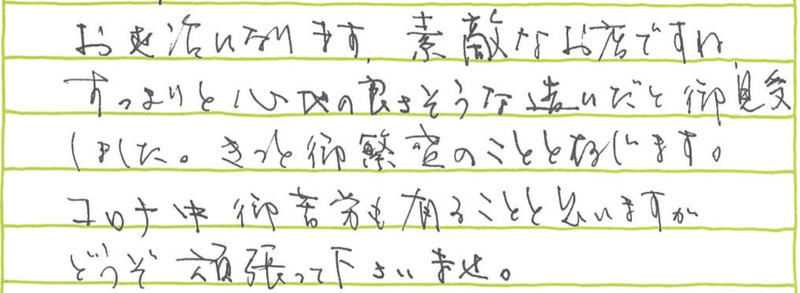 お世話になります。素敵なお店ですね
すっきりと心地の良さそうな造いだと御見受
しました。きっと御繁盛のことと存じます。
コロナ中御苦労も有ることと思いますが
どうぞ頑張って下さいませ。